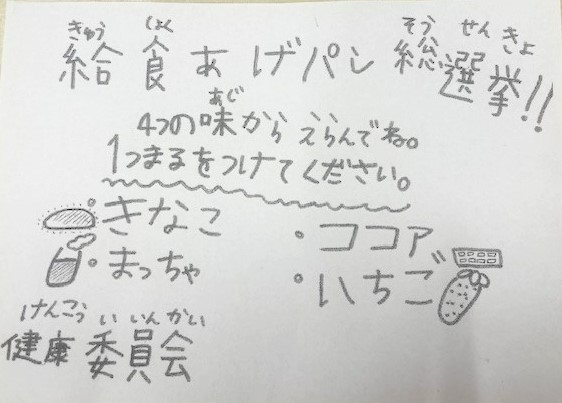 きゅう しょく そう せん きょ
給食あげパン総選挙!!
あじ
4つの味からえらんでね。
1つまるをつけてください。
・きなこ
・ココア
・まっちゃ
・いちご
けんこう い いんかい
健康委員会